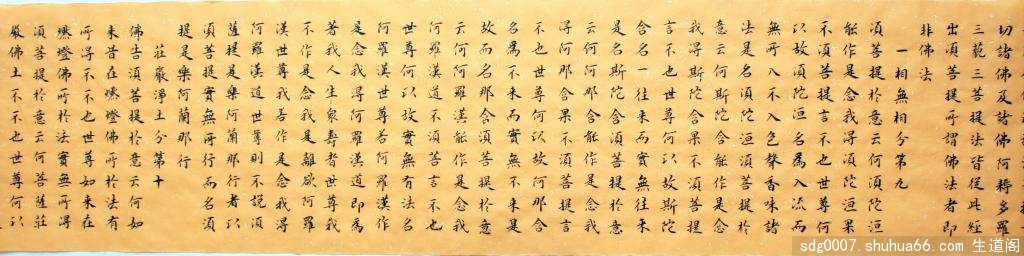 切諸佛及諸佛阿耨多羅
三藐三菩提法皆從此經
出須菩提所謂佛法者即
非佛法
一相無相分第九
須菩提於意云何須陀洹
能作是念我得須陀洹果
不須菩提言不也世尊何
以故須陀洹名為入流而
無所入不入色聲香味諸
法是名須陀洹須菩提於
意云何斯陀含能作是念
我得斯陀含果不須菩提
言不也世尊何以故斯陀
含名一往來而實無往來
是名斯陀含須菩提於意
云何阿那含能作是念我
得阿那含果不須菩提言
不也世尊何以故阿那含
名為不來而實無不來是
故而名那含須菩提於意
云何阿羅漢能作是念我
阿羅漢道不須菩言不也
世尊何以故實無有法名
阿羅漢世尊若阿羅漢作
是念我得阿羅漢道即為
著我人生眾壽者世尊我
不作是念我是離欲阿羅
漢世尊我若作是念我得
阿羅漢道世尊則不說須
薩提是樂阿蘭那行者以
須菩提實無所行而名須
提是樂阿蘭那行
莊嚴淨土分第十
佛告須菩提於意云何如
來昔在燃燈佛所於法有
所得不不也世尊如來在
燃燈佛所於法實無所得
須菩提於意云何菩薩莊
嚴佛土不不也世尊何以
sdg0007.shuhua66.com 生道阁